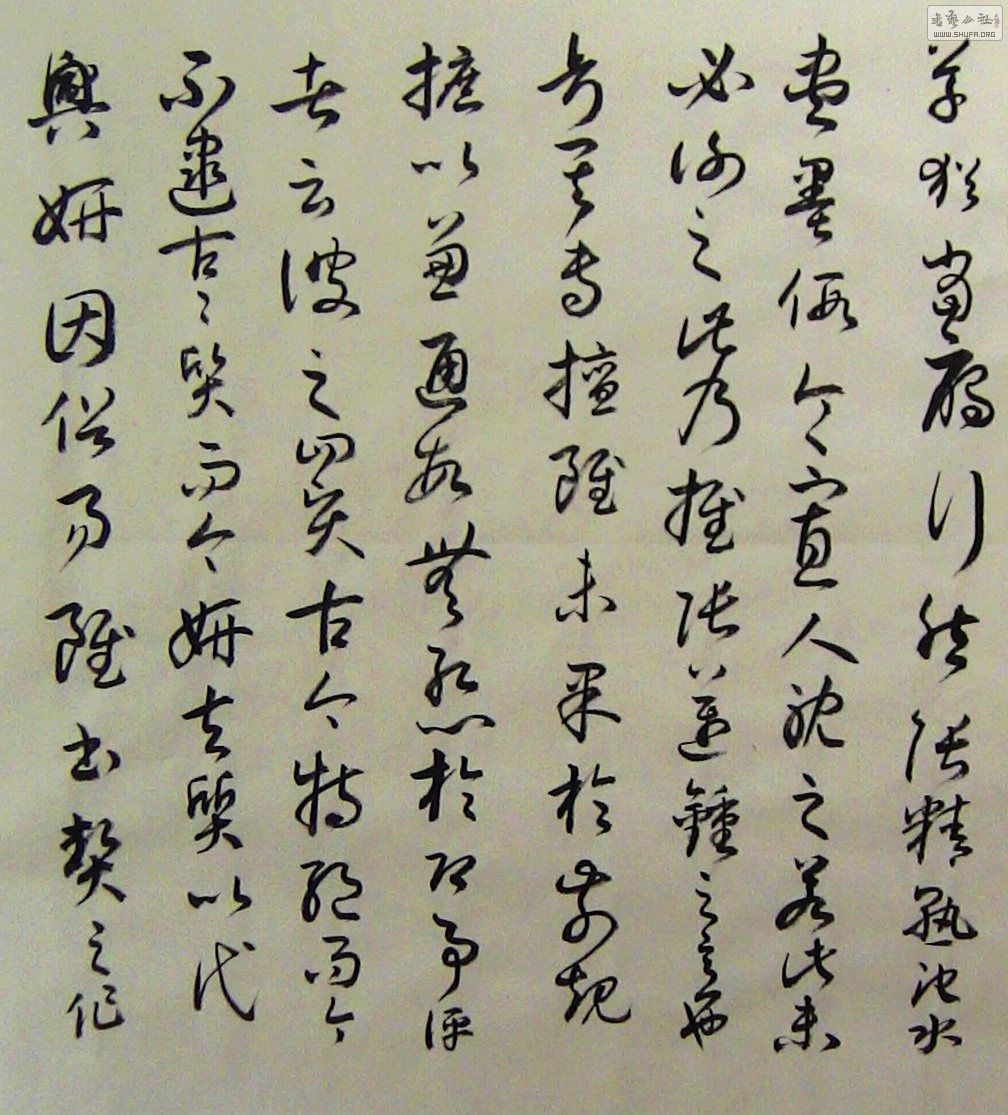 草猶當雁行然張精熟池水
盡墨假令寡人耽之若此未
必謝之此乃推張邁鍾之意也
考其專擅雖未果於前規
摭以兼通故無慙於即事評
者云彼之四賢古今特絕而今
不逮古〻質而今妍夫質以代
興妍因俗易雖書契之作
書藝公社
WWW.SHUFA.ORG